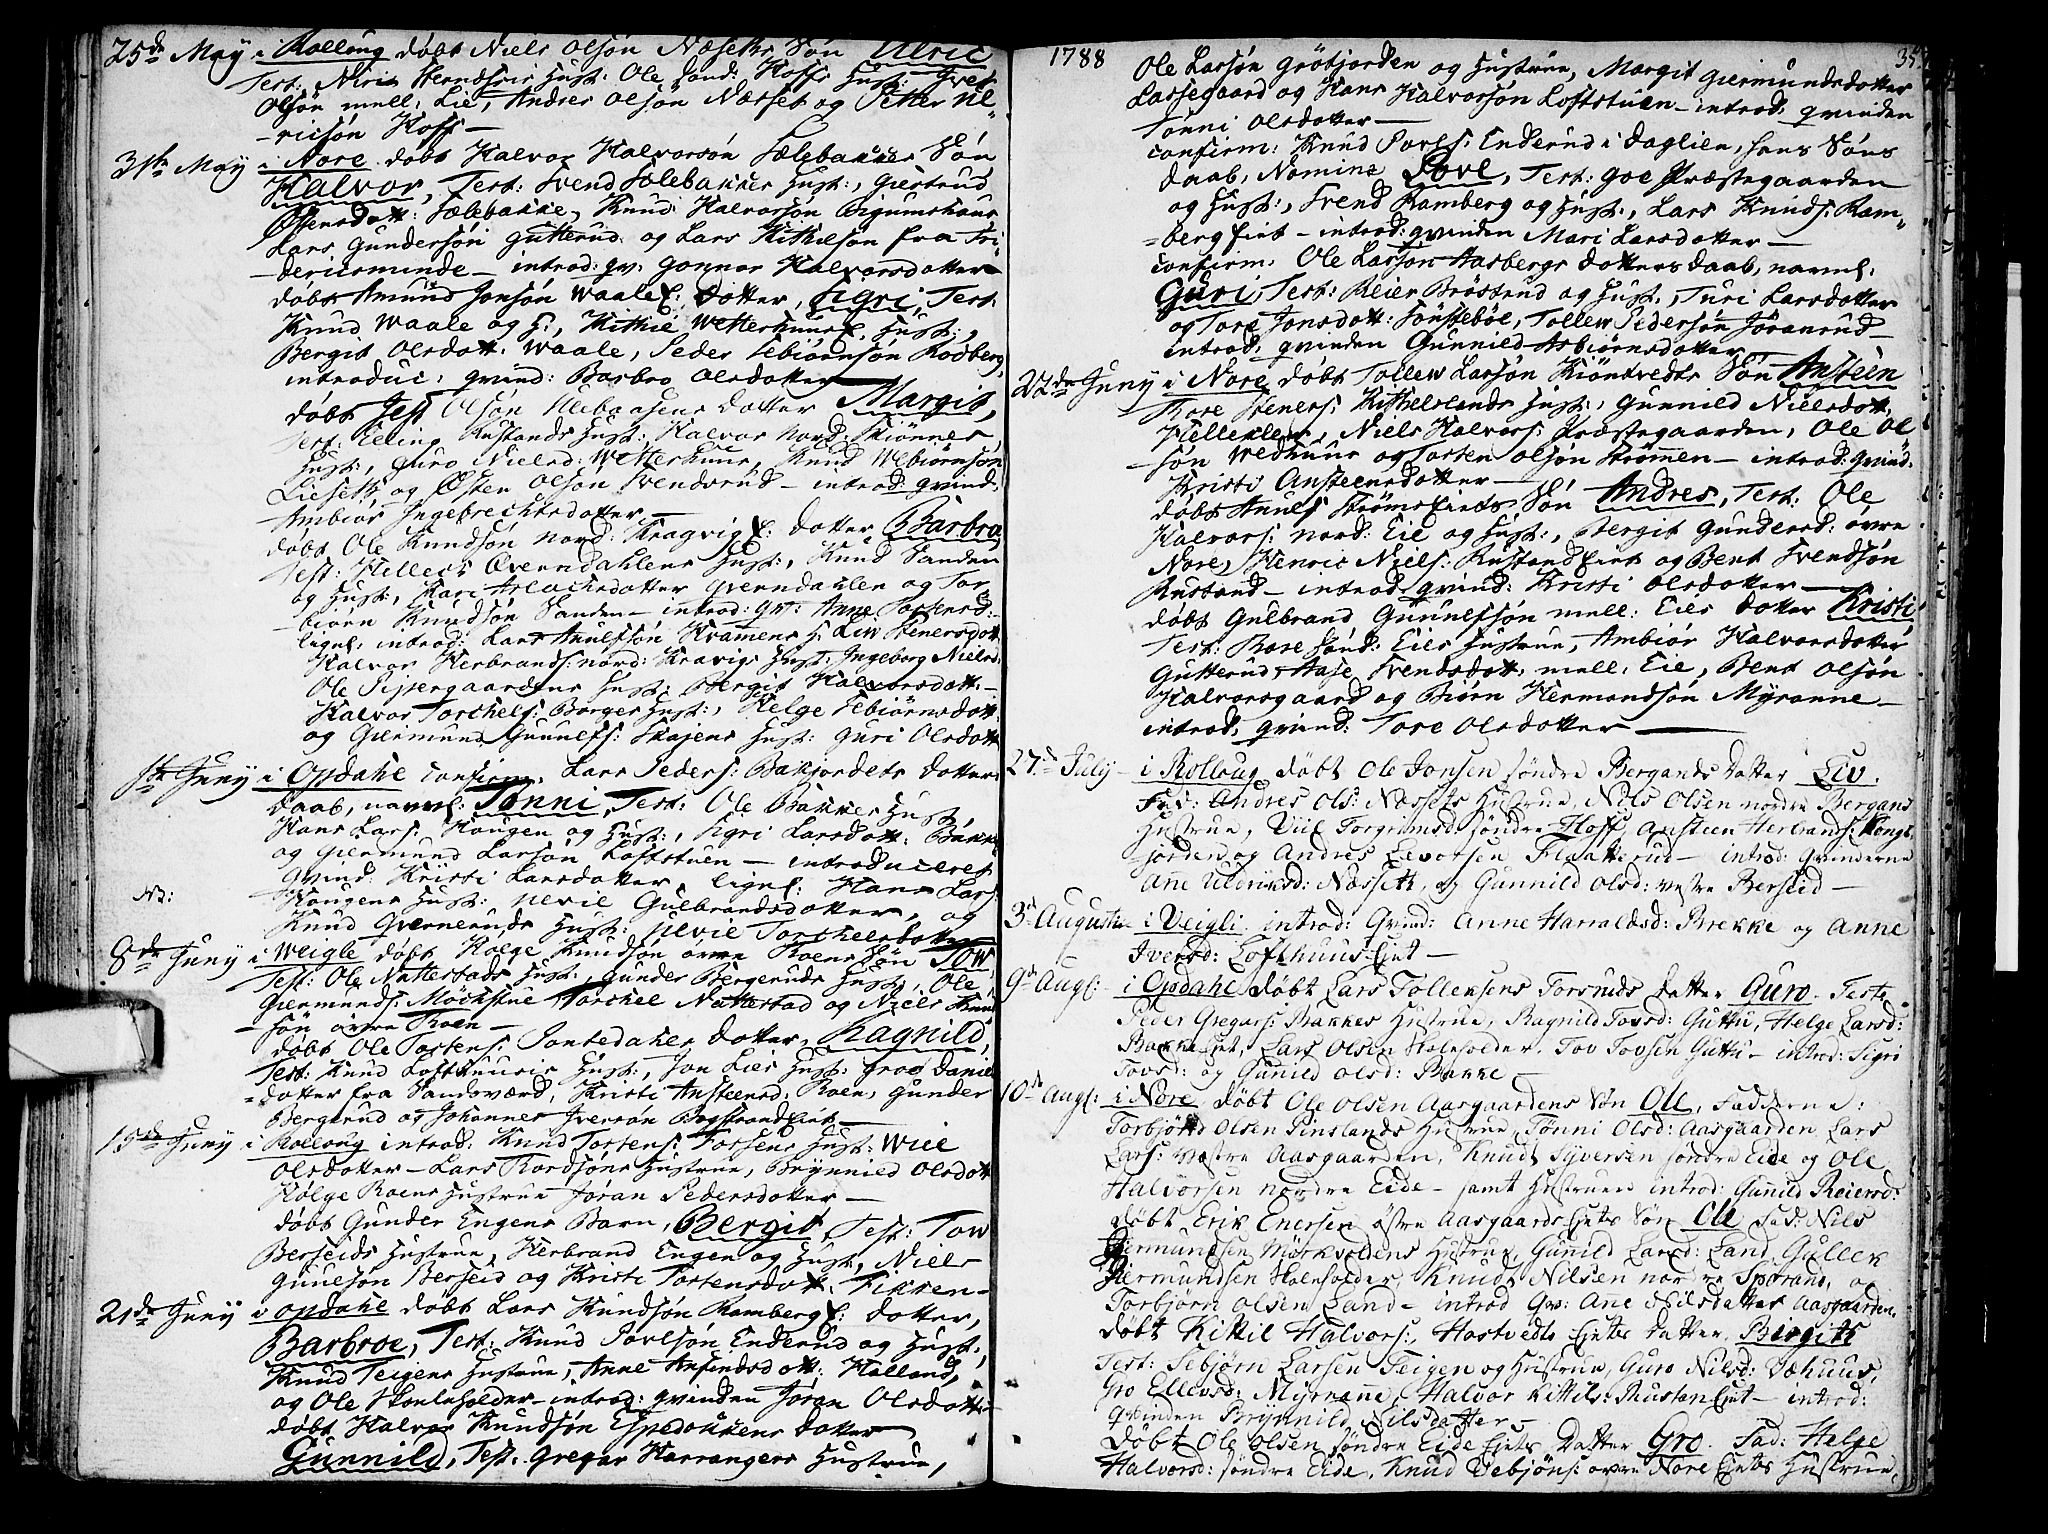 25de May i Rolloug døbt Niels Olsøn Næsets Søn Ulric
Test: Niris Hust: Ole sønd: Hoffs Hust: Gret
Olsøn mell: Lie, Andres Olsøn Næsset og Petter Ul-
-ricsøn Hoff -
31te May i Nore døbt Halvor Halvorsøn Sølebakkes Søn
Halvor, Test: Svend Sølebakkes Hust:, Giertrud
Ostensdott: Sølebakke, Knud Halvorsøn Bigumshaus
Lars Gundersøn Gutterud og Lars Kithilsøn fra Fri
-dericsminde - introd: gv: Gonnor Halvorsdotter
døbt Amund Jonsøn Waale E: Dotter, Sigri, Test:
Knud Waale og H:, Kithil Wetterhuus E: Hust:,
Bergit Olsdott. Waale, Peder Sebiørnsøn Rodberg
introduc: gvind: Barbro Olsdotter
døbt Olsøn Uebaasens Dotter Margit,
Test: Elling Rustands Hust:, Halvor Nord: Skiønnes
Hust:, Guro Nielsd: Wetterhuus, Knud Webiørnsøn
Lieseth og Østen Olsøn Svendsrud - introd: gvind:
Ambiør Ingebrechtsdotter -
døbt Ole Knudsøn nord: Kragvig E: Dotter Barbro,
Test: Hellech Øverndahlens Hust:, Knud Sanden
og Hust:, Kari Aslachsdotter Qverndahlen og Tor
biørn Knudsøn Sanden - introd: gv: Anne Tostensd:
lign: introd: Lars Anulfsøn Kramens H: Liv Stenersdott
Halvor Herbrands: nord: Kravigs Hust: Ingeborg Nielsd:
Ole Pipergaardens Hust: Bergit Halvorsdott: -
Halvor Torchels: Borges Hust:, Helge Sebiørnsdott
og Giermund Gunulfs: Skajens Hust: Guri Olsdott
1ste Juny i Opdahl confirm: Lars Peders: Bakjordets Dotters
Daab, navnl: Tønni, Test: Ole Bakkes Hust:
Hans Lars: Hougen og Hust:, Sigri Larsdott: Bakke
og Giermund Larsøn Loftstuen - introduceret
gvind: Kristi Larsdotter lign: Hans Lars:
NB: Hougens Hust: Nevil Gulbrandsdotter, og
Knud Gvernruds Hust: Nevil Torchelsdotter
8de Juny i Weigle døbt Helge Knudsøn øvre Roens Søn Tow,
Test: Ole Nattestads Hust:, Gunder Bergeruds Hust:, Ole
Giermunds: Møchstue, Torchel Nattestad og Niels Knud
-søn øvre Roen -
døbt Ole Tostens: Jontedahls Dotter, Ragnild,
Test: Knud Lofthuuses Hust:, Jon Lies Hust: Groe Daniels
=dotter fra Sandsværd, Kristi Ansteensd: Roen, Gunder
Bergerud og Johannes Iversøn Bogstrand Eiet -
15de Juny i Rolloug introd: Knud Tostens: Fossens Hust: Wiel
Olsdotter - Lars Tordsøns Hustrue, Brynnild Olsdott
Helge Roens Hustrue Jøran Pedersdotter -
døbt Gunder Engens Barn, Bergit Test: Tow
Berseids Hustrue, Herbrand Engen og Hust:, Niels
Gunulsøn Berseid og Kristi Tostensdott: Fikken-
21de Juny i Opdahl døbt Lars Knudsøn Ramberg E: Dotter,
Barbroe, Test: Knud Povlsøn Enderud og Hust:,
Knud Teigens Hustrue, Anne Anfindsdott: Holland,
og Ole Skoleholder - introd: gvinden Jøran Olsdotter
døbt Halvor Knudsøn Espedokkens Dotter
Gunnild, Test: Gregar Harrangers Hustrue,
1788
35
Ole Larsøn Grøtjorden og Hustrue, Margit Giermundsdotter
Lassegaard og Hans Halvorsøn Loftstuen - introd: gvinden
Tønni Olsdotter -
confirm: Knud Povls: Enderud i Daglien, hans Søns
Daab, Nomine Povl, Test: Goe Præstegaarden
og Hust:, Svend Ramberg og Hust:, Lars Knuds: Ram-
=berg Eiet - introd: gvinden Mari Larsdotter -
confirm: Ole Larsøn Aasbergs Dotters Daab, navnl:
Guri, Test: Reier Brøstrud og Hust:, Turi Larsdotter
og Tore Jonsdott: Jonssebøe, Tollew Pedersøn Jøranrud
introd: gvinden Gunnild Asbiørnsdotter
22de Juny i Nore døbt Tollew Larsøn Kiøntvedts Søn Ansteen
Tore Steners: Kithelslands Hust:, Gunnild Nielsdott.
Helleklew, Niels Halvors: Præstegaarden, Ole Ol
-søn Wedhuus og Torsten Olsøn Strømmen - introd: gvind:
Kristi Ansteensdotter -
døbt Anuls Strøms Eiets Søn Andres, Test: Ole
Halvors: nord: Eie og Hust:, Bergit Gundersd: øvre
Nore, Henric Niels: Rustand Eiet og Bent Svendsøn
Rustand - introd: gvind: Kristi Olsdotter -
døbt Gulbrand Gunulfsøn mell: Eies Dotter Kristi
Test: Bore sønd: Eies Hustrue, Ambiør Halvorsdotter
Gutterud, Aase Svendsdott: mell: Eie, Bent Olsøn
Halvorsgaard og Biørn Hermandsøn Myranne -
introd: gvind: Tore Olsdotter -
27de July - i Rolloug døbt Ole Jonsen søndre Bergands Datter Liv.
Fad: Andres Ols: Næssets Hustrue, Nils Olsen nordre Bergans
Hustrue, Viil Torgrimsd: søndre Hoff, Ansteen Herbrands: Kongs
jorden og Andres Levorsen Flaatterud - introd: Qvinderne
Anne Ulriksd: Næsseth, og Gunnild Olsd: vestre Berseid -
3de Augusti i Veigli introd: Qvind: Anne Harraldsd: Brekke og Anne
Iversd: Lofthuus Ejet -
9de Aug: - i Opdahl døbt Lars Tollefsens Torsruds Datter Guro. Test:
Peder Gregars: Bakkes Hustrue, Ragnild Tovsd: Guttu, Helge Larsd:
Bakke Ejet, Lars Olsen Skoleholder. Tov Tovsen Guttu - introd: Sigri
Tovsd: og Gunild Olsd: Bakke -
10de Aug: i Nore døbt Ole Olsen Aasgaardens Søn Ole, Fadderne:
Torbjørn Olsen Sinslands Hustrue, Tønni Olsd: Aasgaarden, Lars
Lars: Vestre Aasgaarden, Knud Syversen søndre Eide og Ole
Halvorsen nordre Eide - samt Hustruen introd: Gunild Reiersd:
døbt Erik Enersen østre Aasgaards Ejets Søn Ole Fad: Nils
Germundsen Mørkvoldens Hustrue, Gunild Larsd: Land, Gullek
Giermundsen Skoleholder, Knud Nilsen nordre Sporand, og
Torbjørn Olsen Land - introd Qv: Anne Nilsdatter Aasgaarden.
døbt Kittil Halvors: Hastvedts Ejets Datter Birgith
Test: Sebjørn Larsen Teigen og Hustrue, Guro Nilsd: Væhuus,
Gro Ellevsd: Myranne, Halvor Kittils: Rustan Ejet - introd:
Qvinden Brynnild Nilsdatter -
Døbt Ole Olsen søndre Eide Ejets Datter Gro. Fad: Helge
Halvorsd: søndre Eide, Knud Vebjøns: øvre Nore Ejets Hustrue,